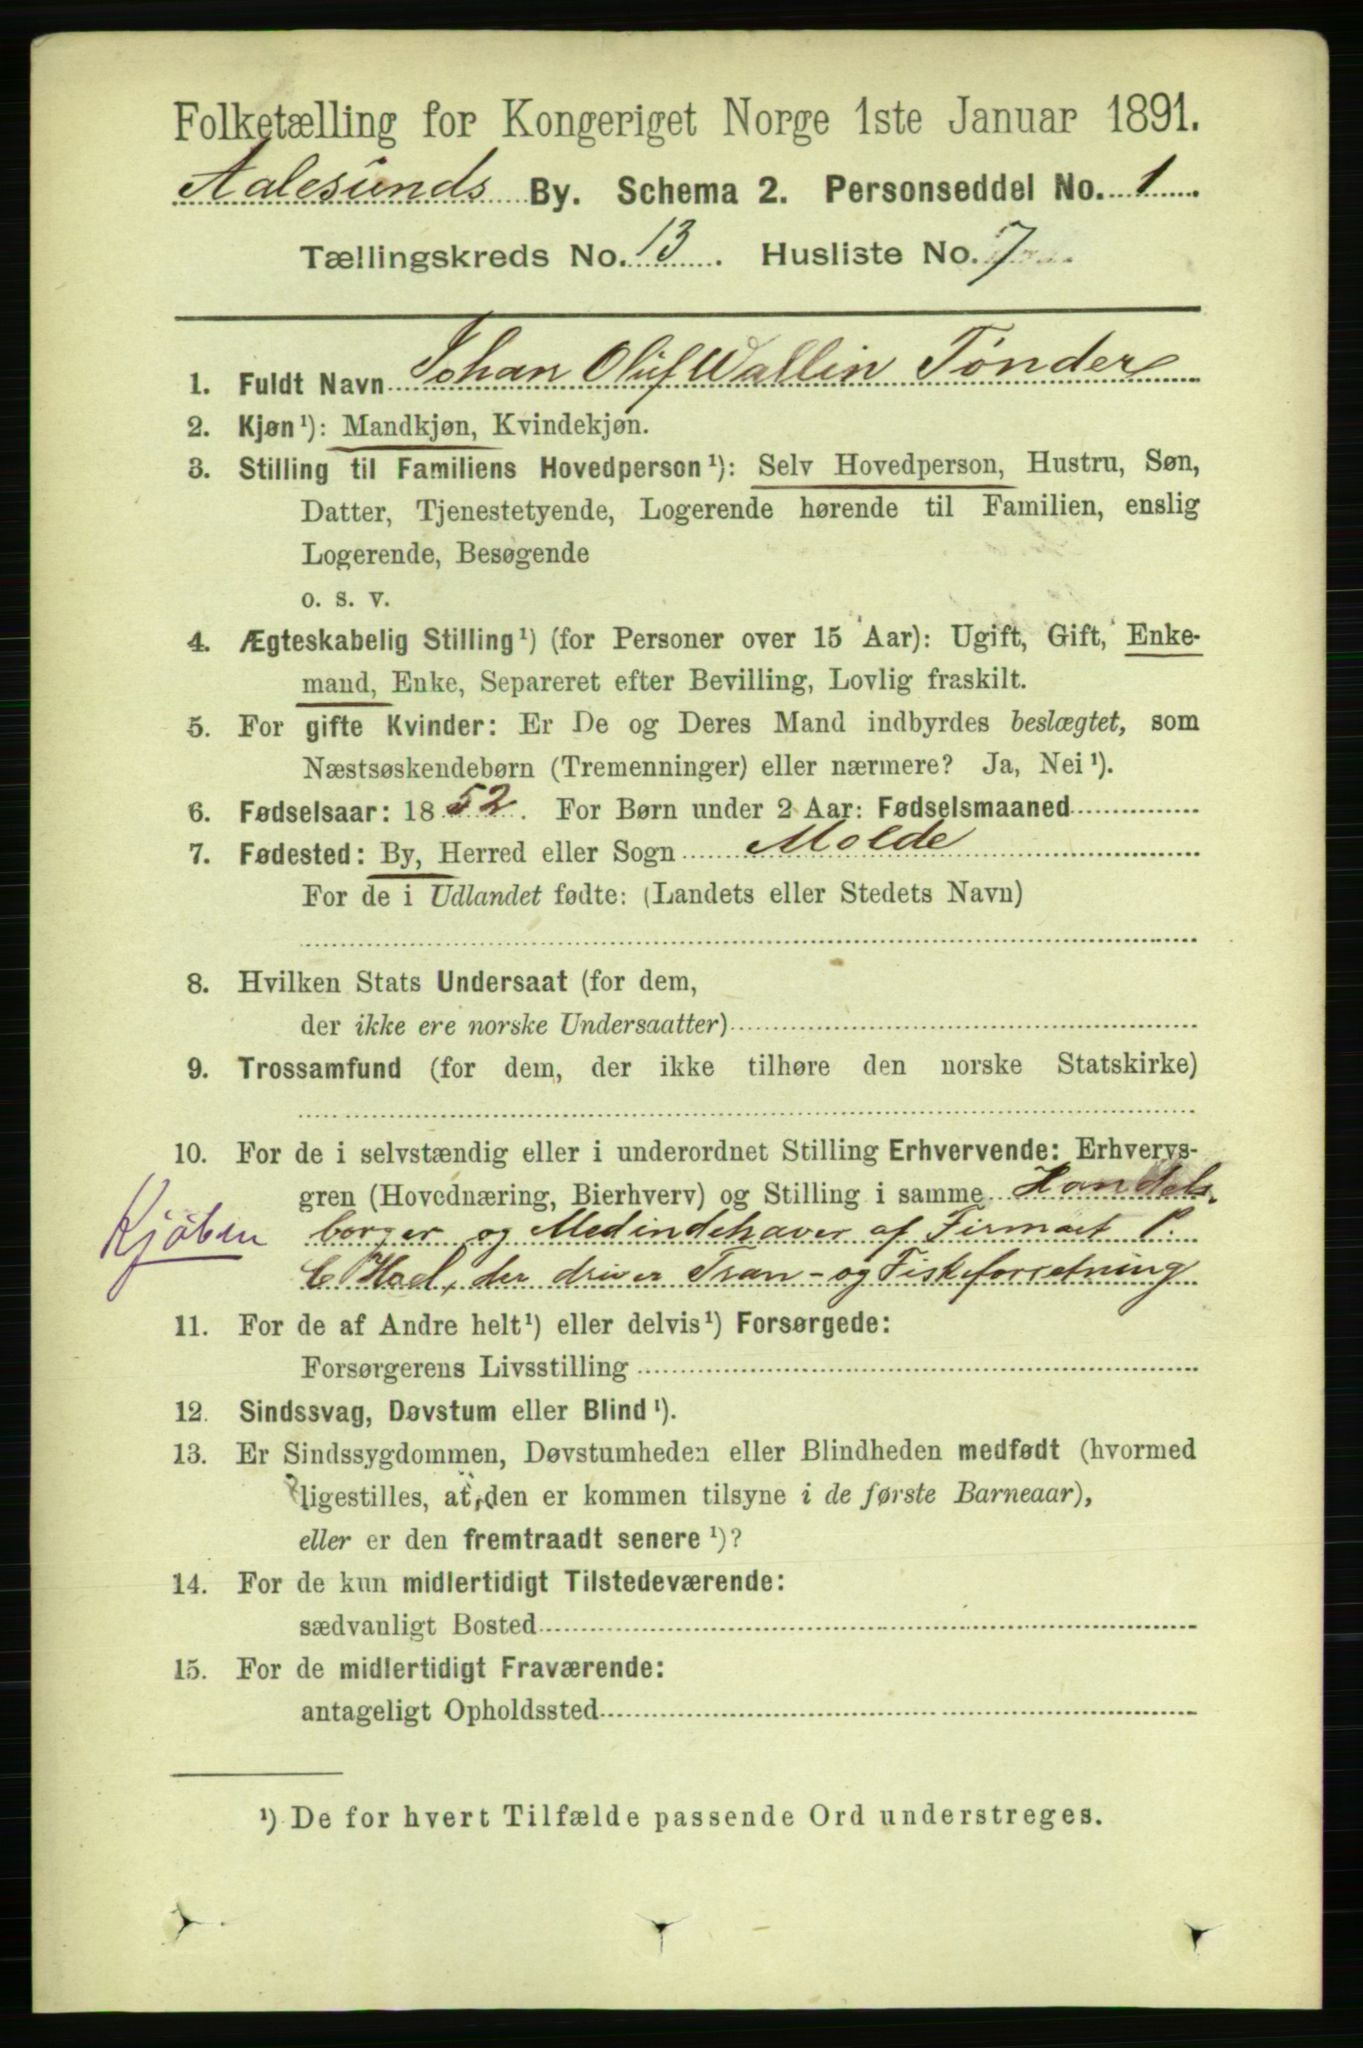 Folketælling for Kongeriget Norge 1ste Januar 1891.
Aalesunds By. Schema 2. Personseddel No. 1
Tællingskreds No. 13. Husliste No. 7
1. Fuldt Navn Johan Oluf Wallin Tønder
2. Kjøn¹): Mandkjøn, Kvindekjøn.
3. Stilling til Familiens Hovedperson¹): Selv Hovedperson, Hustru, Søn,
Datter, Tjenestetyende, Logerende hørende til Familien, enslig
Logerende, Besøgende
o. s. v.
4. Ægteskabelig Stilling¹) (for Personer over 15 Aar): Ugift, Gift, Enke-
mand, Enke, Separeret efter Bevilling, Lovlig fraskilt.
5. For gifte Kvinder: Er De og Deres Mand indbyrdes beslægtet, som
Næstsøskendebørn (Tremenninger) eller nærmere? Ja, Nei¹).
6. Fødselsaar: 1852. For Børn under 2 Aar: Fødselsmaaned
7. Fødested: By, Herred eller Sogn Molde
For de i Udlandet fødte: (Landets eller Stedets Navn)
8. Hvilken Stats Undersaat (for dem,
der ikke ere norske Undersaatter)
9. Trossamfund (for dem, der ikke tilhøre den norske Statskirke)
10. For de i selvstændig eller i underordnet Stilling Erhvervende: Erhvervs-
gren (Hovednæring, Bierhverv) og Stilling i samme Handels
Kjøben borger og Medindehaver af Firmaet P.
C Hoel, der driver Tran- og Fiskeforretning
11. For de af Andre helt¹) eller delvis¹) Forsørgede:
Forsørgerens Livsstilling
12. Sindssvag, Døvstum eller Blind¹).
13. Er Sindssygdommen, Døvstumheden eller Blindheden medfødt (hvormed
ligestilles, at den er kommen tilsyne i de første Barneaar),
eller er den fremtraadt senere¹)?
14. For de kun midlertidigt Tilstedeværende:
sædvanligt Bosted
15. For de midlertidigt Fraværende:
antageligt Opholdssted
¹) De for hvert Tilfælde passende Ord understreges.